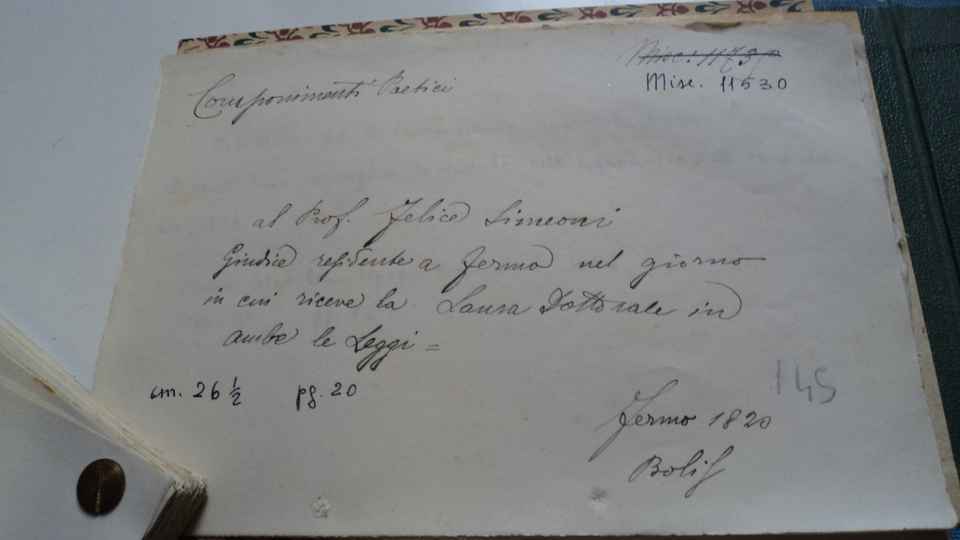 Misc. 11530
Componimenti Poetici
al Prof. Felice Simeoni
Giudice residente a Fermo nel giorno
in cui riceve la Laura Dottorale in
ambe le Leggi =
cm. 26 ½ pg. 20
145
Fermo 1820